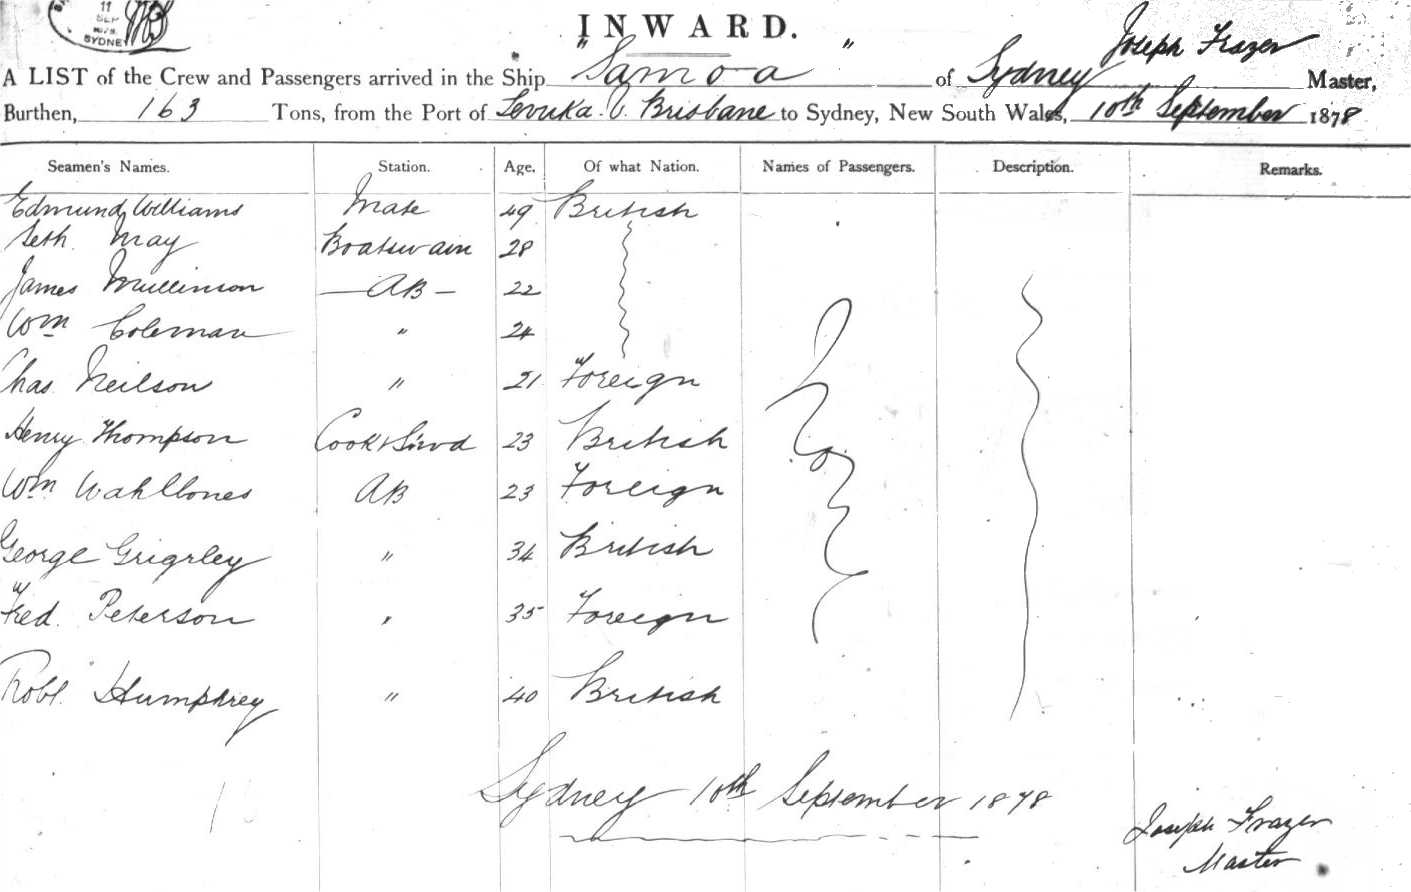 11
SEP
SYDNEY
INWARD.
Joseph Frazer
A LIST of the Crew and Passengers arrived in the Ship "Samoa" of Sydney Master,
Burthen, 163 Tons, from the Port of Levuka V. Brisbane to Sydney, New South Wales, 10th September 1878
Seamen's Names. Station. Age. Of what Nation. Names of Passengers. Description. Remarks.
Edmund Williams Mate 49 British
Seth May Boatswain 28
James Mullinson — AB — 22
Wm Coleman " 24
Chas Neilson " 21 Foreign
Henry Thompson Cook & Stwd 23 British
Wm AB 23 Foreign
George Grigrley " 34 British
Fred. Peterson " 35 Foreign
Robt. Humphrey " 40 British
Sydney 10th September 1878
Joseph Frazer
Master